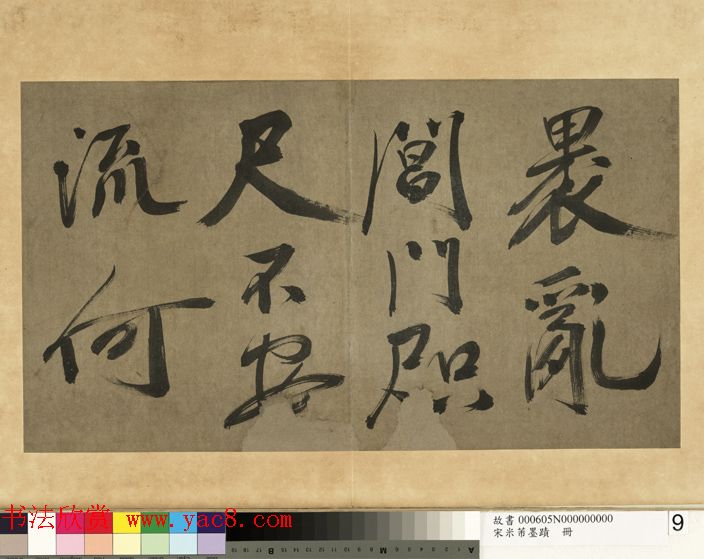 裏亂
閶門咫
尺不安
流何
书法欣赏 www.yac8.com
故書 000605N000000000
宋米芾墨蹟 冊
9